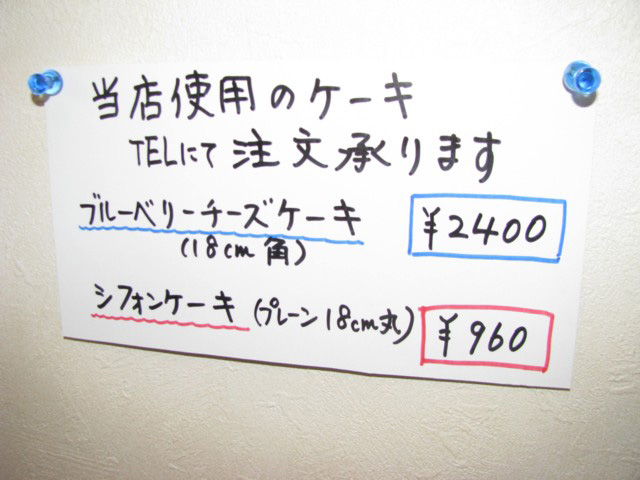 当店使用のケーキ
TELにて注文承ります
ブルーベリーチーズケーキ ¥2400
(18cm角)
シフォンケーキ (プレーン18cm丸) ¥960